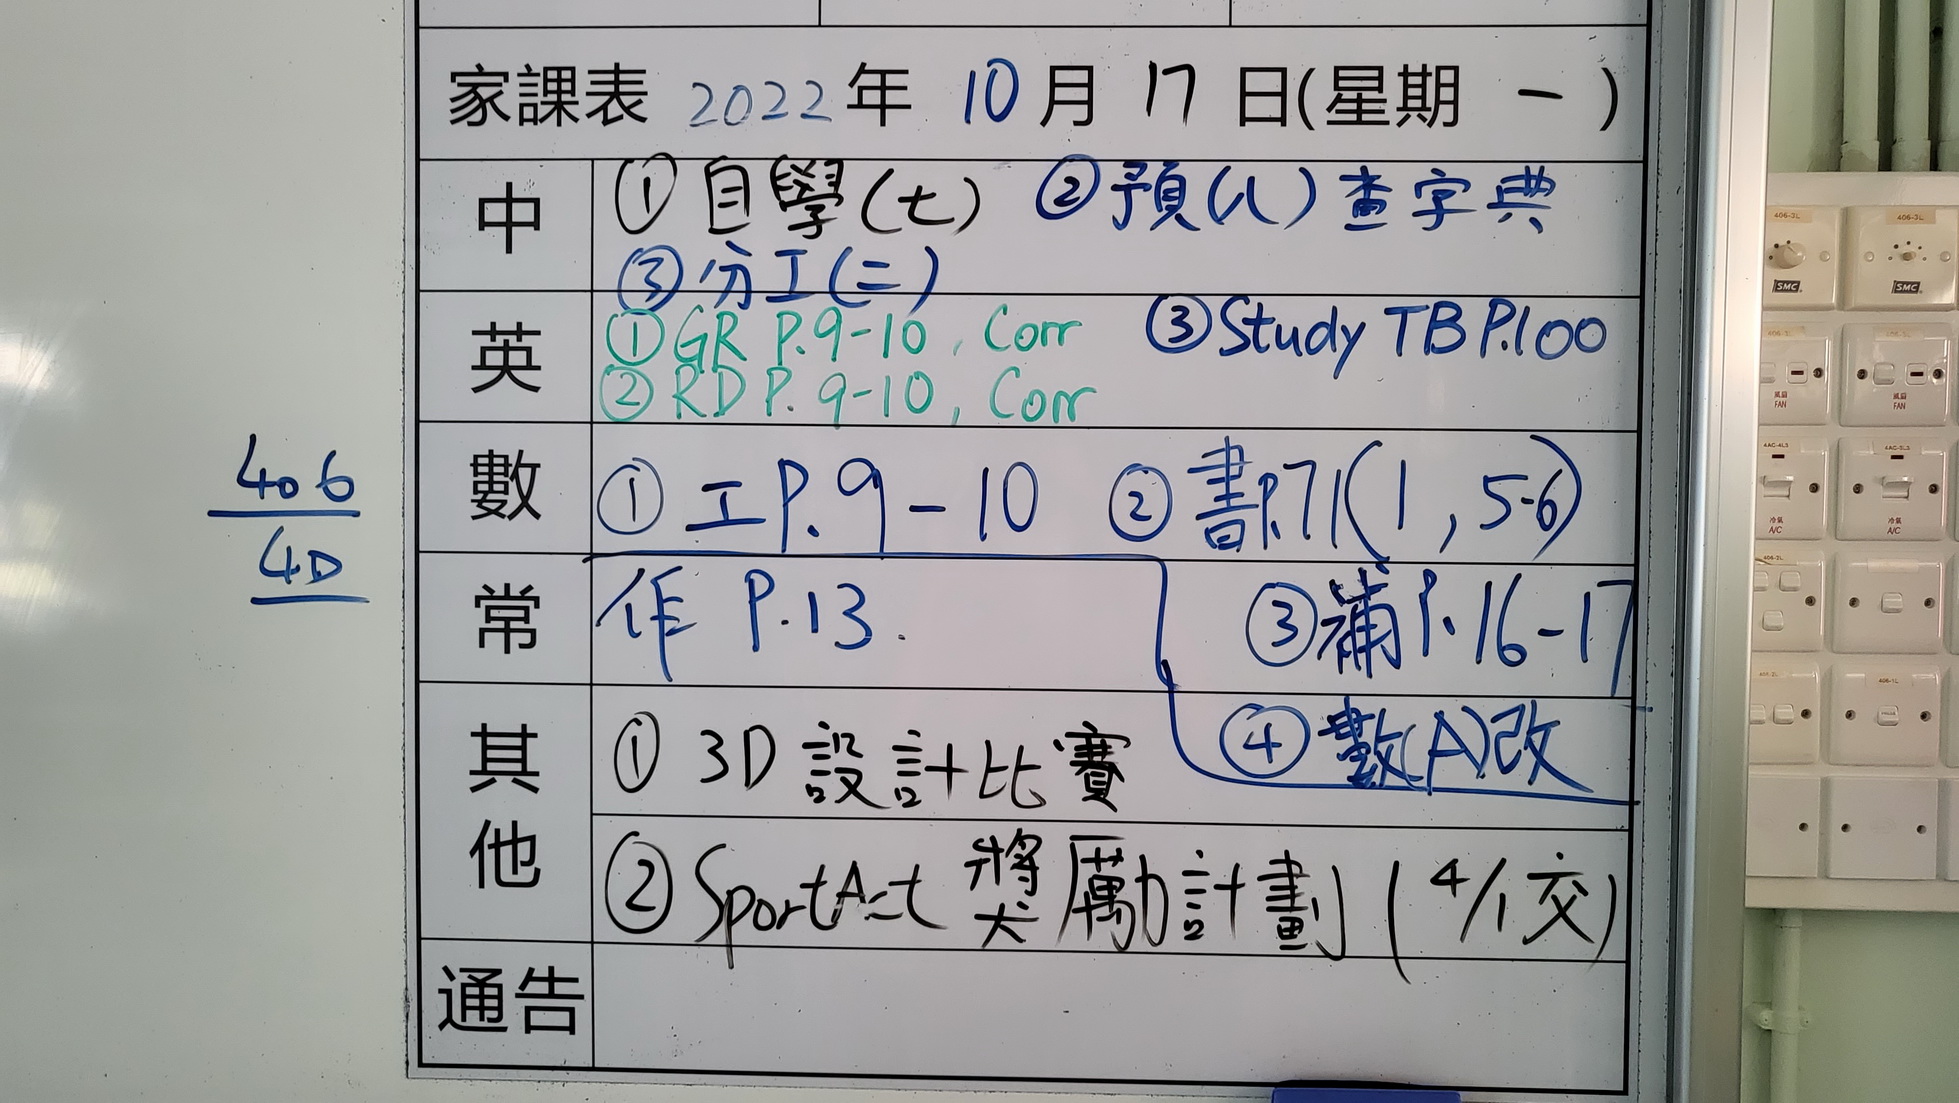 家課表 2022年 10月 17日(星期 一)
中 ①自學(七) ②預(八)查字典
③分工(二)
英 ①GR P.9-10, Corr ③Study TB P.100
②RD P.9-10, Corr
406
4D
數 ①工P.9-10 ②書P.71(1,5-6)
常 作 P.13. ③補P.16-17
④數(A)改
其他 ①3D設計比賽
②SportAct 獎勵計劃(4/1交)
通告
406-3L
406-3L
SMC
SMC
風扇
FAN
風扇
FAN
4AC-4L5
冷氣
A/C
冷氣
A/C